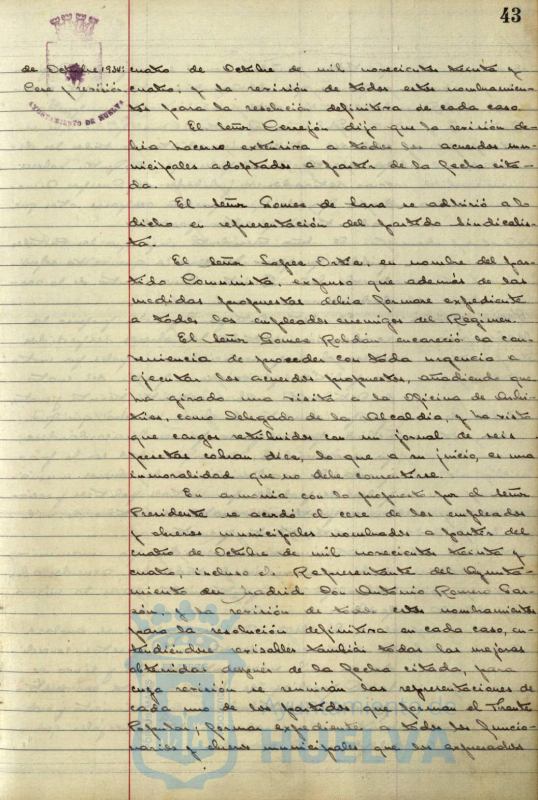 43
de Octubre 1934: cuatro de Octubre de mil novecientos treinta y
Cese y revisión cuatro; y la revisión de todos estos nombramien-
AYUNTAMIENTO DE HUELVA
tos para la resolución definitiva de cada caso.
El señor Cerrejón dijo que la revisión de-
bía hacerse extensiva a todos los acuerdos mu-
nicipales adoptados a partir de la fecha cita-
da.
El señor Gomez de Lara se adhirió a lo
dicho en representación del partido Sindicalis-
ta.
El señor Lopez Ortiz, en nombre del par-
tido Comunista, expuso que además de las
medidas propuestas debia formarse expediente
a todos los empleados enemigos del Régimen.
El señor Gomez Roldán encareció la con-
veniencia de proceder con toda urgencia a
ejecutar los acuerdos propuestos, añadiendo que
ha girado una visita a la Oficina de Arbi-
trios, como Delegado de la Alcaldia, y ha visto
que cargos retribuidos con un jornal de seis
pesetas cobran diez, lo que a su juicio, es una
inmoralidad que no debe consentirse.
En armonia con lo propuesto por el señor
Presidente se acordó el cese de los empleados
y obreros municipales nombrados a partir del
cuatro de Octubre de mil novecientos treinta y
cuatro, incluso el Representante del Ayunta-
miento en Madrid don Antonio Romero Gar-
zón, y la revisión de todos estos nombramientos
para la resolución definitiva en cada caso, en-
tendiéndose revisables también todas las mejoras
obtenidas después de la fecha citada, para
cuya revisión se reunirán las representaciones de
cada uno de los partidos que forman el Frente
Popular; formar expedientes a todos los funcio-
narios y obreros municipales que los expresados
HUELVA